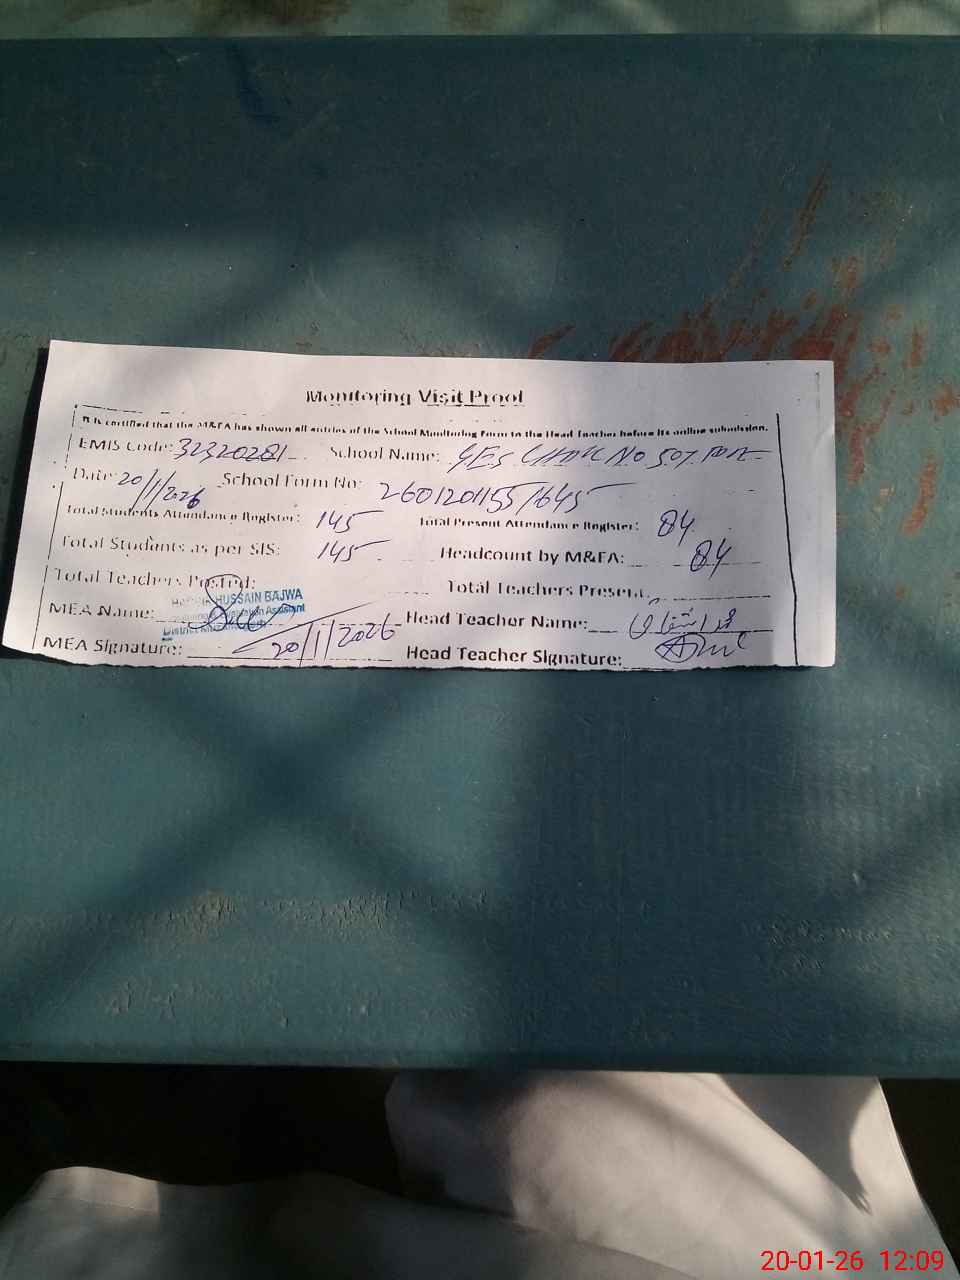 Monitoring Visit Proof
It is certified that the M&EA has shown all entries of the School Monitoring Form to the Head Teacher before its online submission.
EMIS Code: 32320281 School Name: GES CHAK NO 507
Date: 20/1/2026 School Form No: 26012011551645
Total Students Attendance Register: 145 Total Present Attendance Register: 84
Total Students as per SIS: 145 Headcount by M&EA: 84
Total Teachers Posted: Total Teachers Present:
MEA Name: HUSSAIN BAJWA Head Teacher Name:
Assistant
District
MEA Signature: 20/1/2026 Head Teacher Signature:
20-01-26 12:09